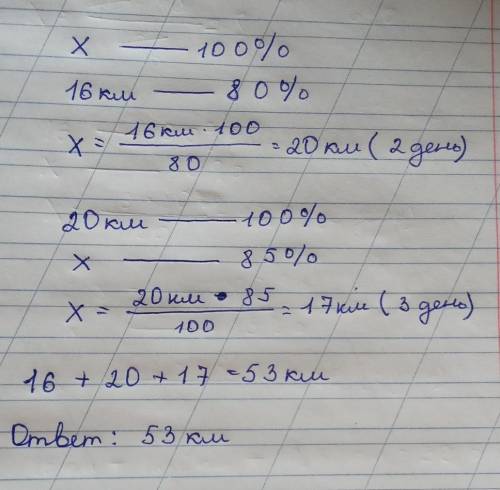 x — 100%
16 км — 80%
x = 16 км · 100 / 80 = 20 км ( 2 день)
20 км — 100%
x — 85%
x = 20 км · 85 / 100 = 17 км ( 3 день)
16 + 20 + 17 = 53 км
Ответ: 53 км